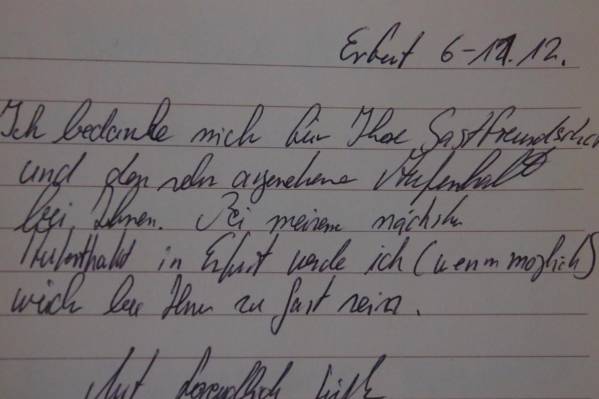 Erfurt 6-12.12.
Ich bedanke mich für Ihre Gastfreundschaf
und den sehr angenehme Aufenhalt
bei Ihnen. Bei meinem nächste
Aufenthalt in Erfurt werde ich (wenn möglich)
wider bei Ihnen zu Gast sein.
Mit freundlich